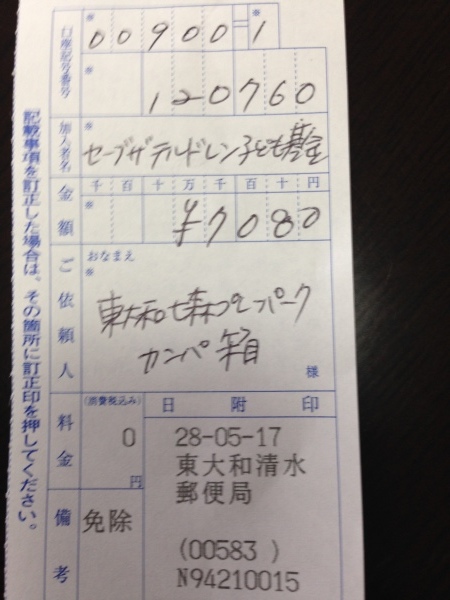 口座記号番号
※ 00900=1 ※
※ 120760
加入者名
※
セーブザチルドレン子ども基金
金額
千 百 十 万 千 百 十 円
※ ¥7080
ご依頼人
おなまえ
※
東大和七森プレーパーク
カンパ箱
様
料金
(消費税込み)
0
円
備考
免除
日 附 印
28-05-17
東大和清水
郵便局
(00583 )
N94210015
記載事項を訂正した場合は、その箇所に訂正印を押してください。